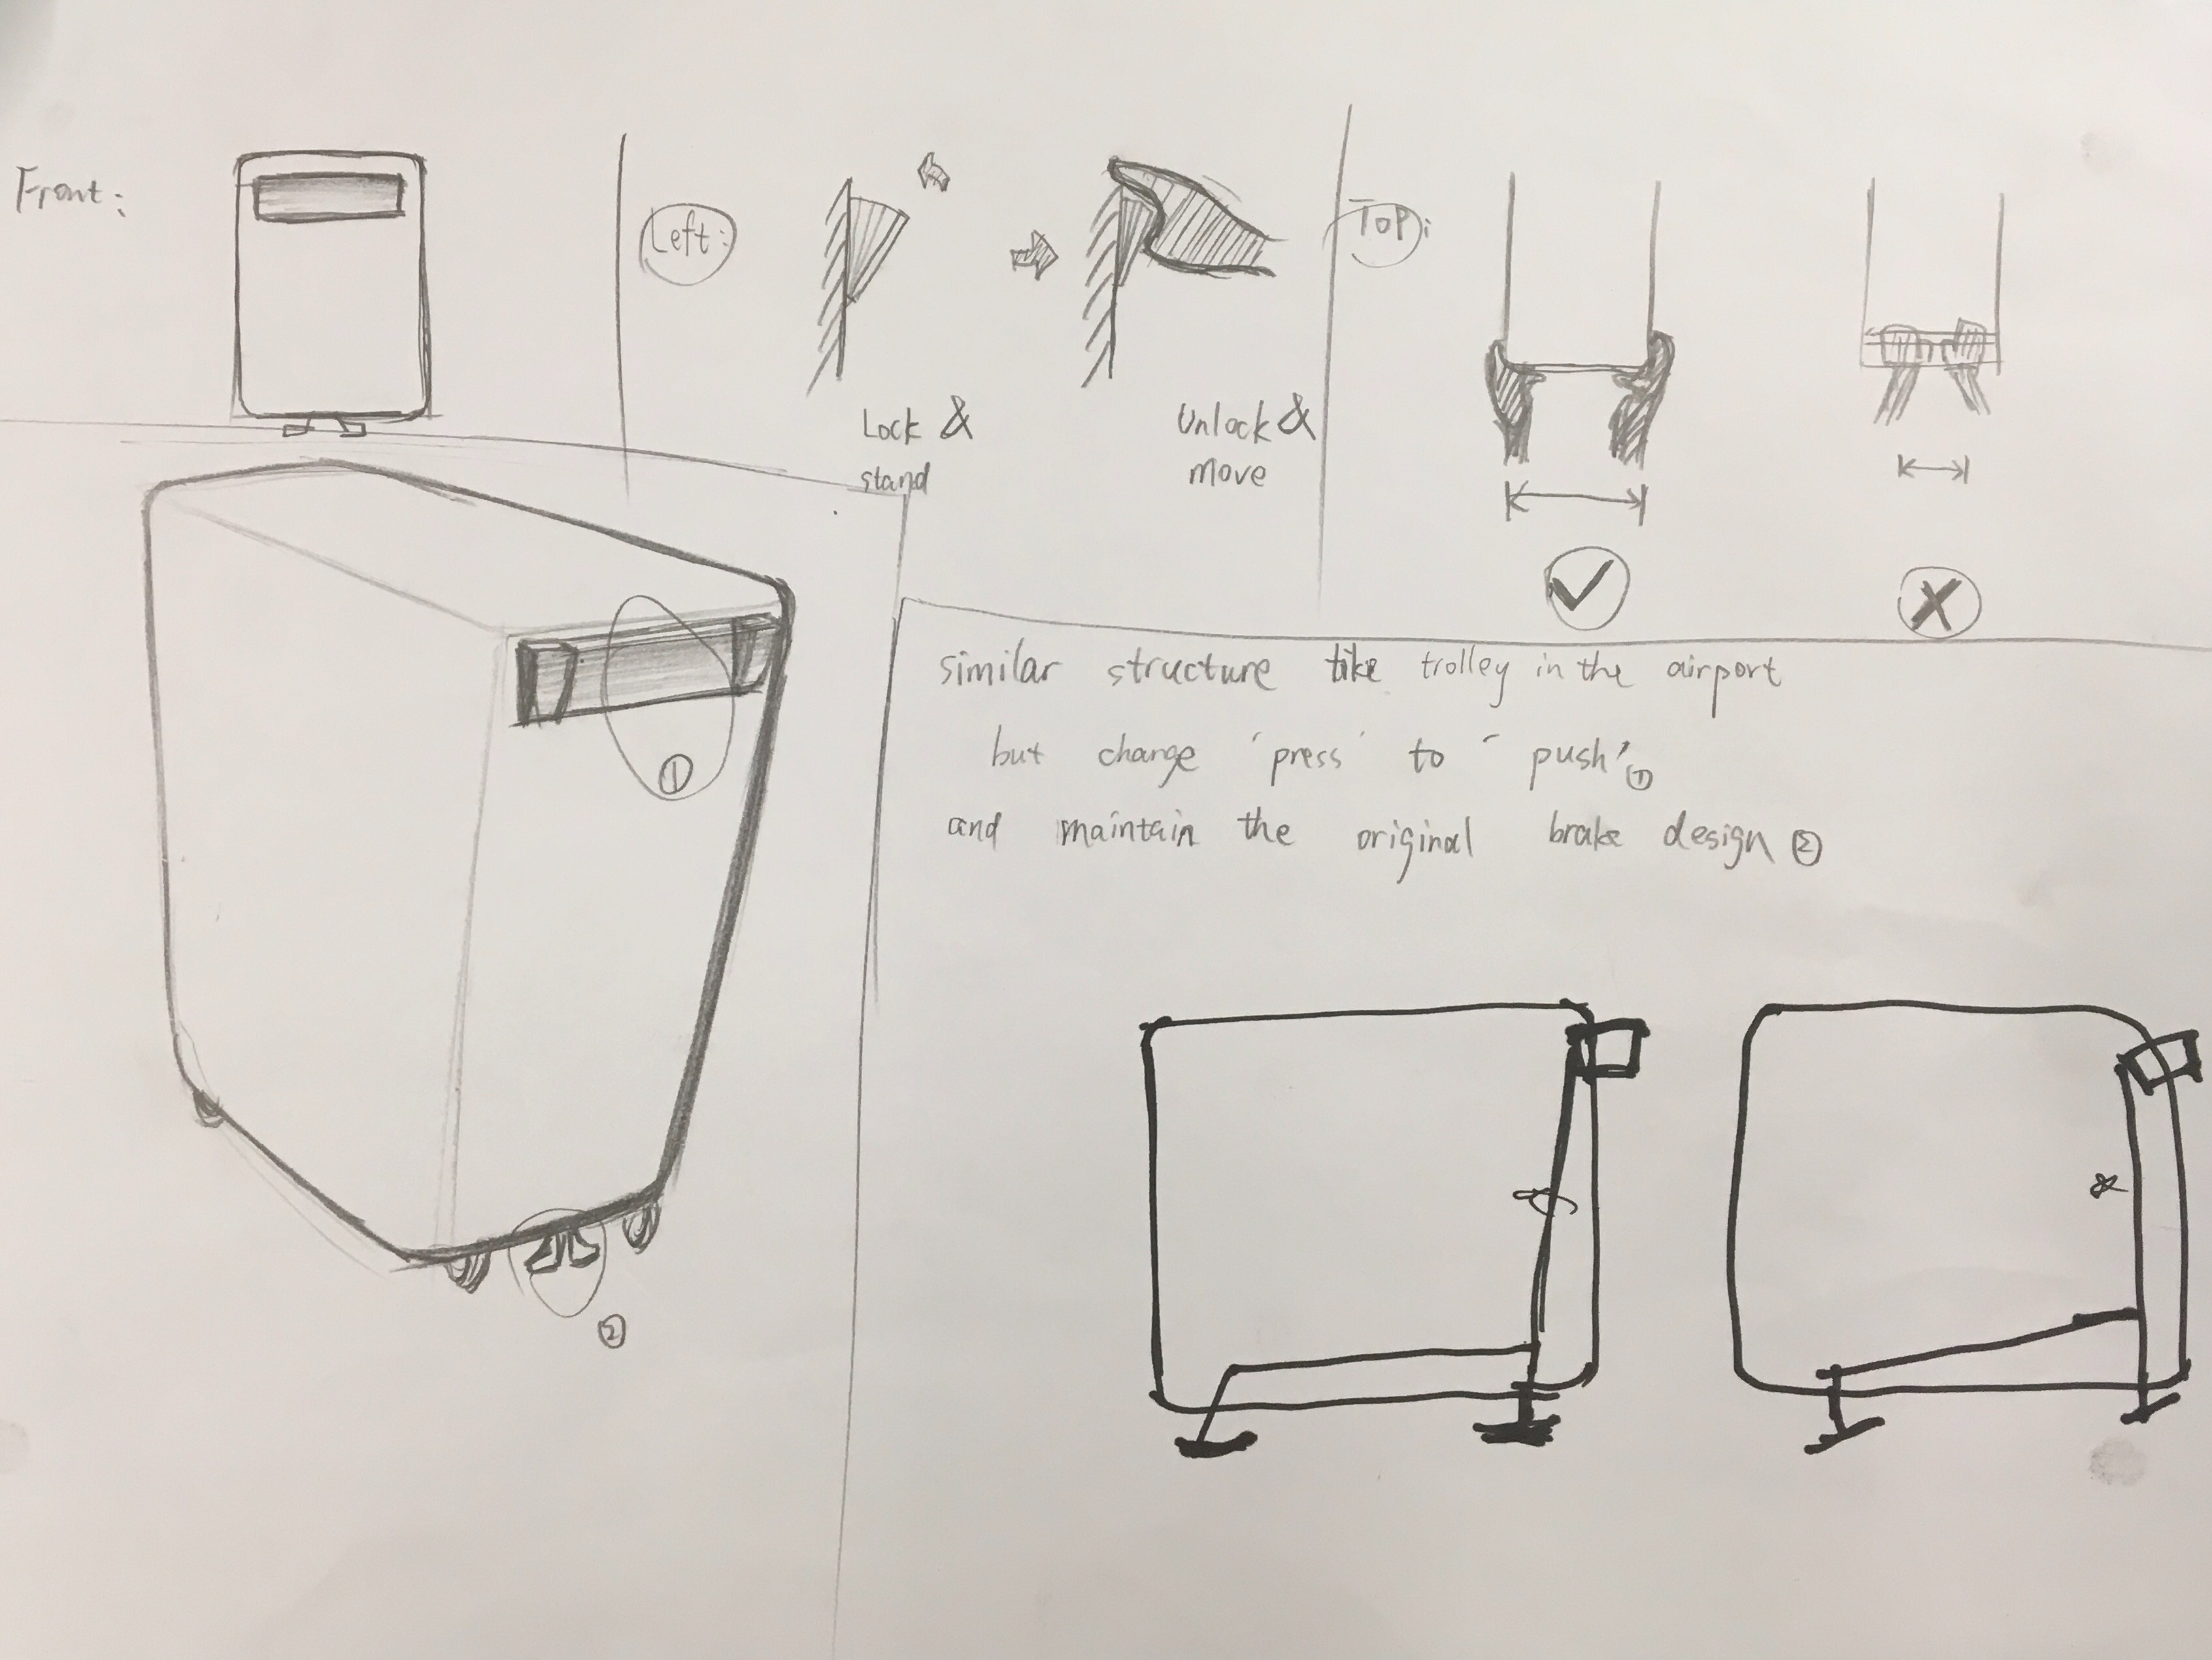 Front:
Left:
Lock &
stand
Unlock &
move
TOP:
similar structure like trolley in the airport
but change 'press' to 'push' ①
and maintain the original brake design ②
①
②